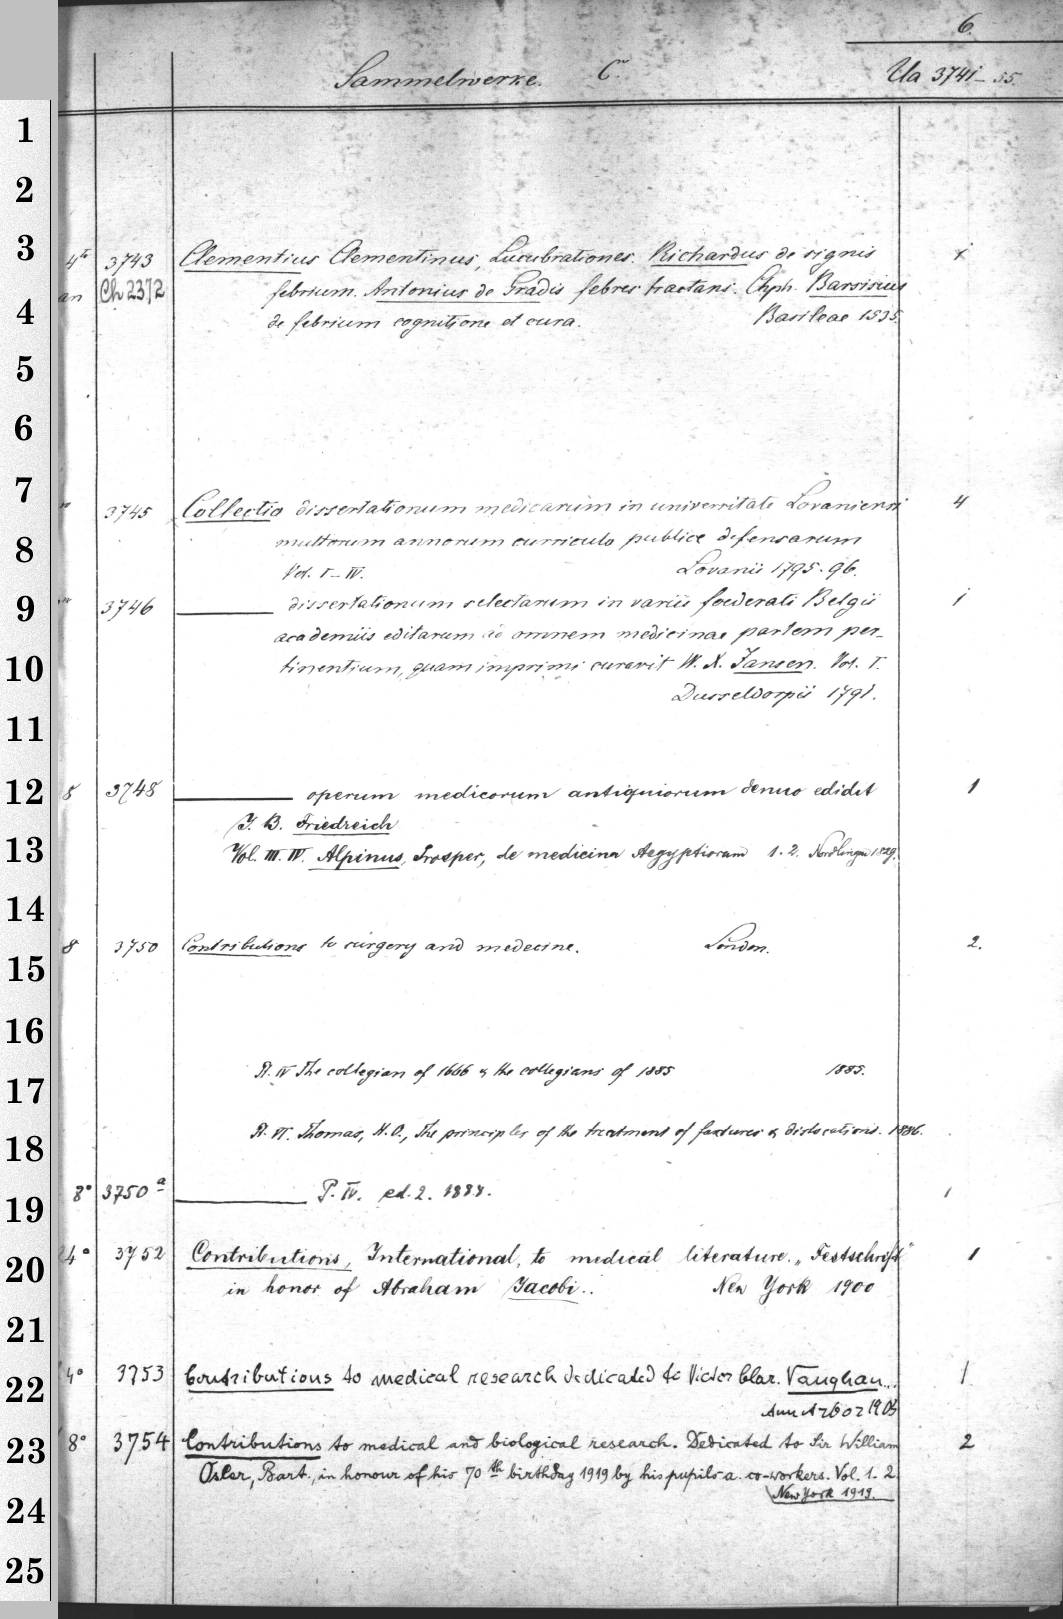 6.
Sammelwerke. C. Ua 3741-55.
1
2
3
4to 3743 Clementius Clementinus, Lucubrationes. Richardus de signis 1
an Ch 2372 febrium. Antonius de Gradis febres tractans. Chph. Barsisius
4
de febrium cognitione et cura. Basileae 1535.
5
6
7
" 3745 Collectio dissertationum medicarum in universitate Lovaniensi 4
8
multorum annorum curriculo publice defensarum
Vol. I-IV. Lovanii 1795-96.
9
" 3746 ——— dissertationum selectarum in variis foederati Belgii 1
academiis editarum ad omnem medicinae partem per-
10
tinentium, quam imprimi curavit W. X. Jansen. Vol. I.
Dusseldorpii 1791.
11
12
8 3748 ——— operum medicorum antiquiorum denuo edidit 1
J. B. Friedreich
13
Vol. III. IV. Alpinus, Prosper, de medicina Aegyptiorum 1. 2. Nordlingae 1829.
14
8 3750 Contributions to surgery and medecine. London. 2.
15
16
Pt. IV The collegian of 1666 & the collegians of 1885 1885.
17
Pt. VI. Thomas, H. O., The principles of the treatment of fractures & dislocations. 1886.
18
8° 3750a ——— P. IV. ed. 2. 1888. 1
19
4° 3752 Contributions, International, to medical literature. „Festschrift" 1
20
in honor of Abraham Jacobi.. New York 1900
21
4° 3753 Contributions to medical research dedicated to Victor Clar. Vaughan... 1
22
Ann Arbor 1903
23
8° 3754 Contributions to medical and biological research. Dedicated to Sir William 2
Osler, Bart., in honour of his 70th birthday 1919 by his pupils a. co-workers. Vol. 1-2
New York 1919.
24
25